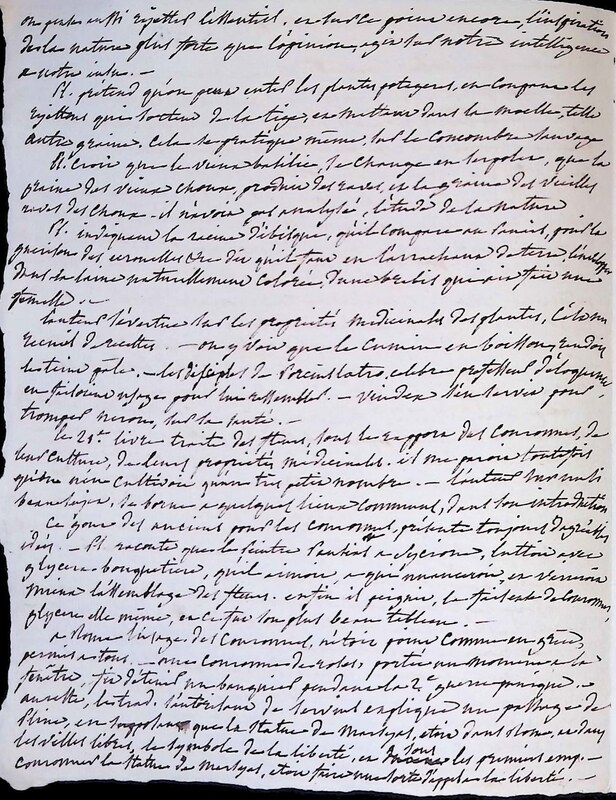 on peut aussi rejetter l'essentiel, et sur ce point encore, l'inspiration
de la nature plus forte que l'opinion, agit sur notre intelligence
a notre insu. —
Pl. prétend qu'on peut enter les plantes potageres, en coupant les
rejettons qui sortent de la tige, et mettant dans la moelle, telle
autre graine, cela se pratique même, sur le concombre sauvage
Pl. croit que le vieux basilic, se change en serpolet, que la
graine des vieux choux, produit des raves, et la graine des vieilles
raves des choux — il n'avoit pas analysé, l'étude de la nature
Pl. indiquent la racine d'ibisque, qu'il compare au panais, pour la
guerison des ecrouelles dit qu'il faut en l'arrachant de terre l'envelopper
dans la laine naturellement colorée, d'une brebis qui ait fait une
femelle. —
l'auteur s'évertue sur les propriétés médicinales des plantes, c'est un
recueil de recettes. — on y voit que le cumin en boisson, rend
le teint pâle, — les disciples de Porcius Latro, celebre professeur d'éloquence,
en faisoient usage pour lui ressembler. — vindex s'en servit pour
tromper neron, sur sa santé. —
le 21e livre traite des fleurs, sous le rapport des couronnes, de
leur culture, de leurs propriétés médicinales. il me paroit toutefois
qu'on n'en cultivoit qu'un tres petit nombre. — l'auteur sur un si
beau sujet, se borne a quelques lieux communs, dans son introduction
Ce gout des anciens pour les couronnes, présente toujours d'agréables
idées. — Pl. raconte que le peintre Pausias a Sycione, luttoit avec
glycera bouquetière, qu'il aimoit, a qui nuanceroit, et varieroit
mieux l'assemblage des fleurs. enfin il peignit, la faiseuse de couronnes,
glycere elle même, et ce fut son plus beau tableau. —
a Rome l'usage des couronnes, n'étoit point comme en grèce,
permis a tous. — une couronne de roses, portée un moment a la
fenêtre, fit détenir un banquier pendant la 2e guerre punique. —
au reste, le trad. explique un passage de
Pline, en supposant que la statue de marsyas, etoit dans Rome, et dans
les villes libres, le symbole de la liberté, et sous les premiers emp. —
couronner la statue de marsyas, etoit faire une sorte d'appel a la liberté. —